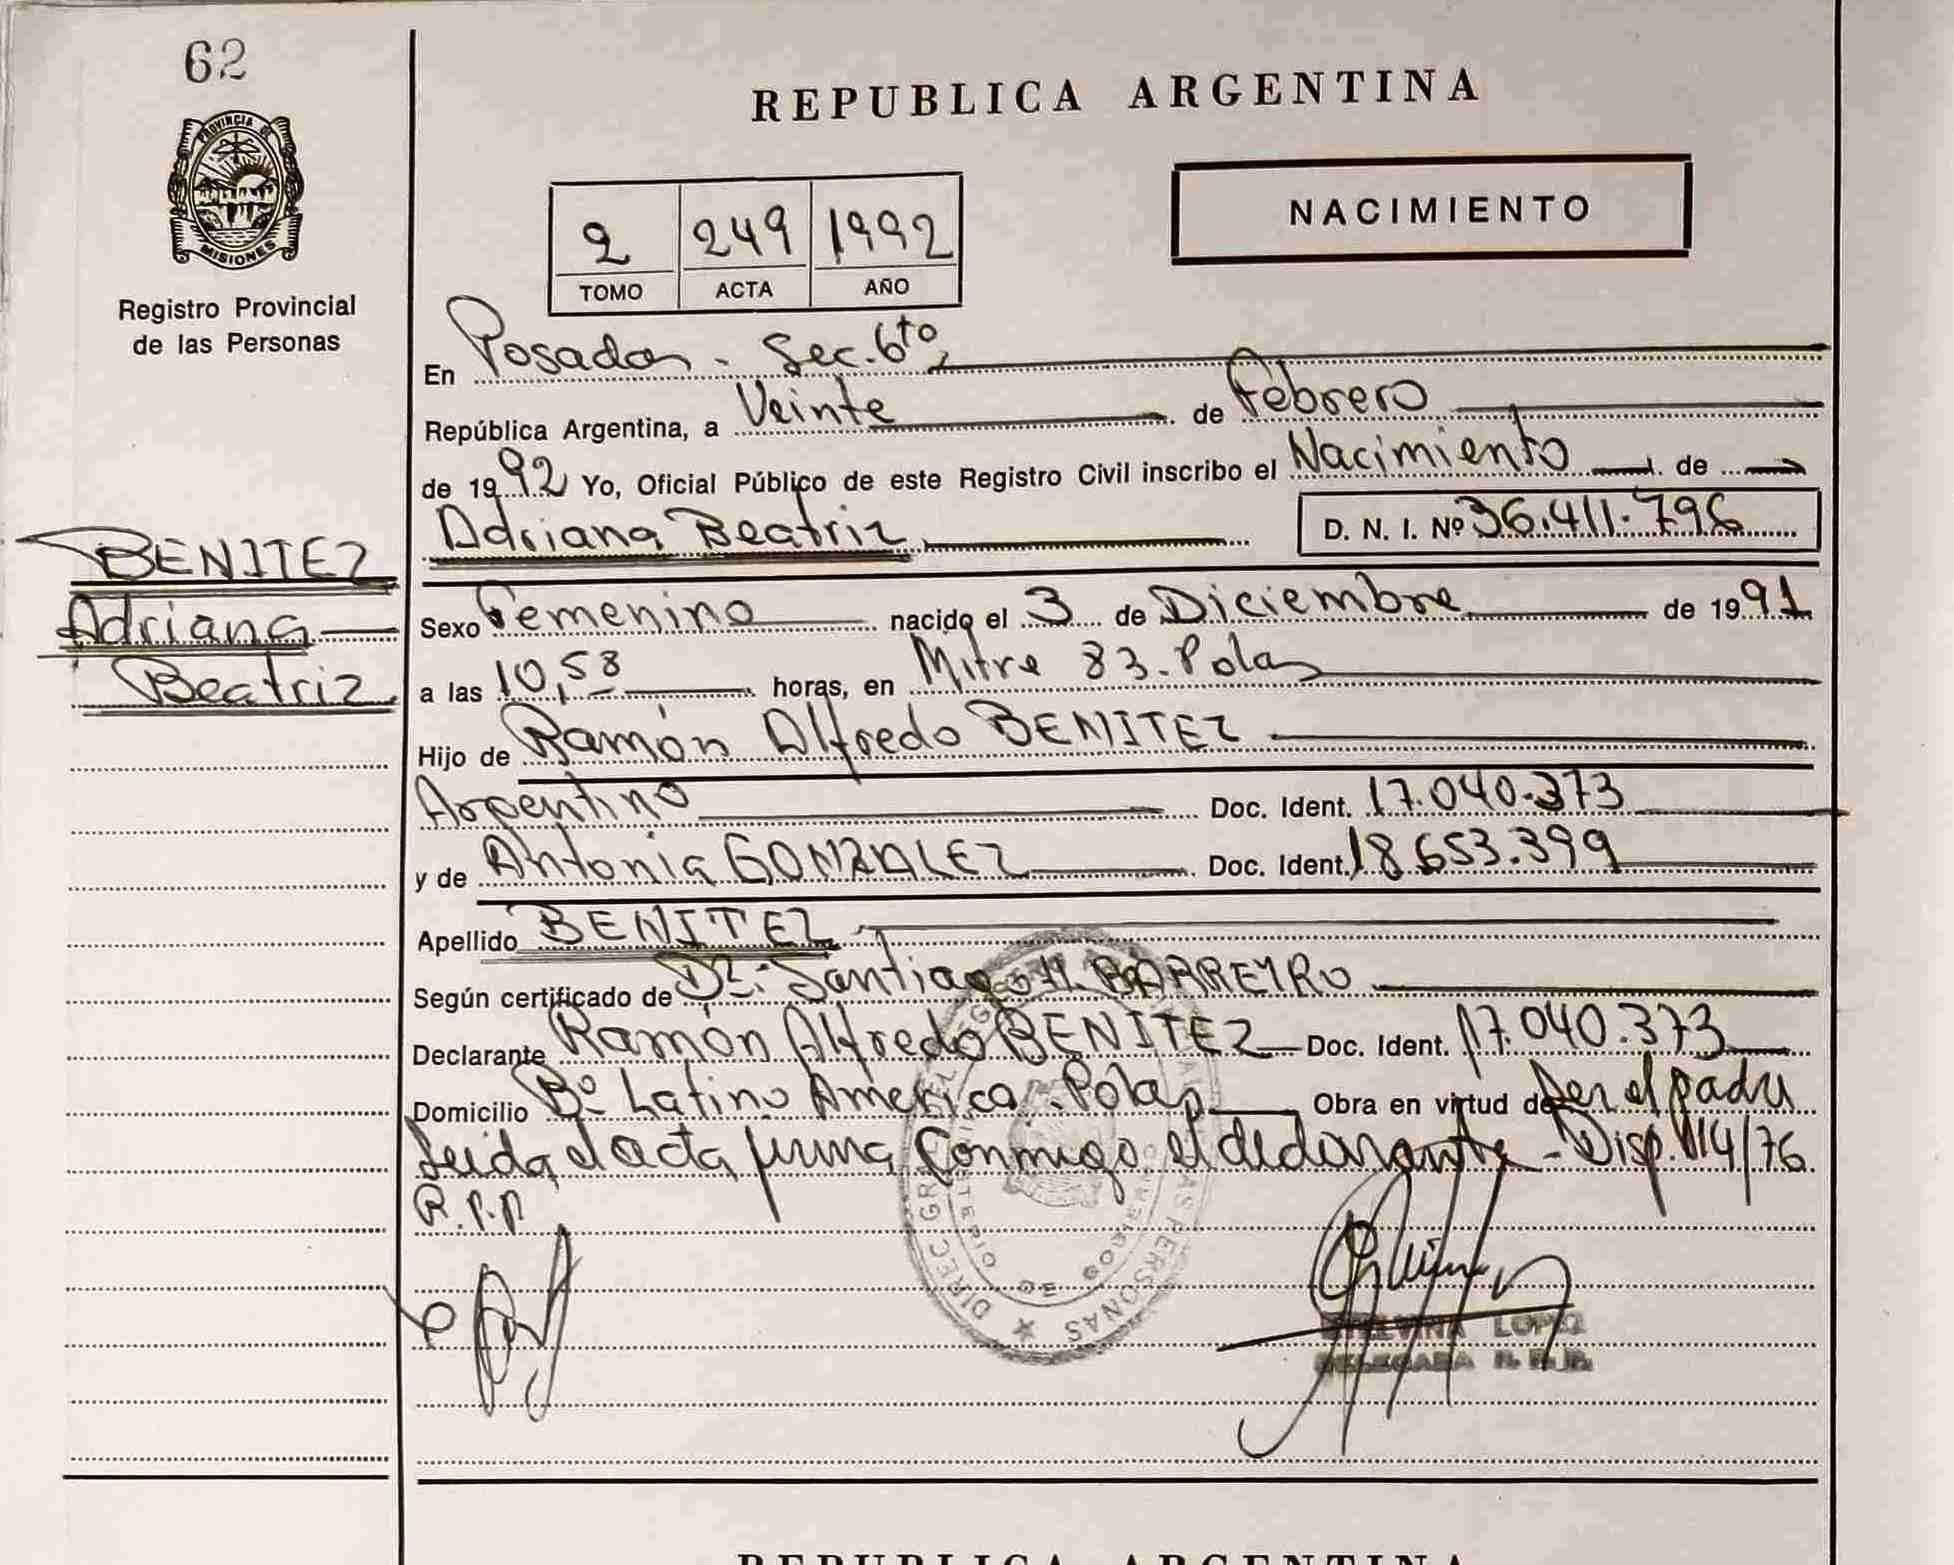 62
PROVINCIA DE
MISIONES
Registro Provincial
de las Personas
REPUBLICA ARGENTINA
NACIMIENTO
2 249 1992
TOMO ACTA AÑO
En Posadas - Sec. 6to
República Argentina, a Veinte de Febrero
de 1992 Yo, Oficial Público de este Registro Civil inscribo el Nacimiento de
Adriana Beatriz D. N. I. Nº 36.411.796
BENITEZ
Adriana
Beatriz
Sexo Femenino nacido el 3 de Diciembre de 1991
a las 10,58 horas, en Mitre 83. Pdas
Hijo de Ramón Alfredo BENITEZ
Argentino Doc. Ident. 17.040.373
y de Antonia GONZALEZ Doc. Ident. 18.653.399
Apellido BENITEZ
Según certificado de Dr: Santiago H. BARREYRO
Declarante Ramón Alfredo BENITEZ Doc. Ident. 17.040.373
Domicilio Bº Latino America - Pdas Obra en virtud de ser el padre
Leida el acta firma conmigo el declarante - Disp. 114/76
R.P.P.
DIREC GRAL DE GOBIERNO PERSONAS
LOPEZ
DELEGADA R. P. P.
REPUBLICA ARGENTINA